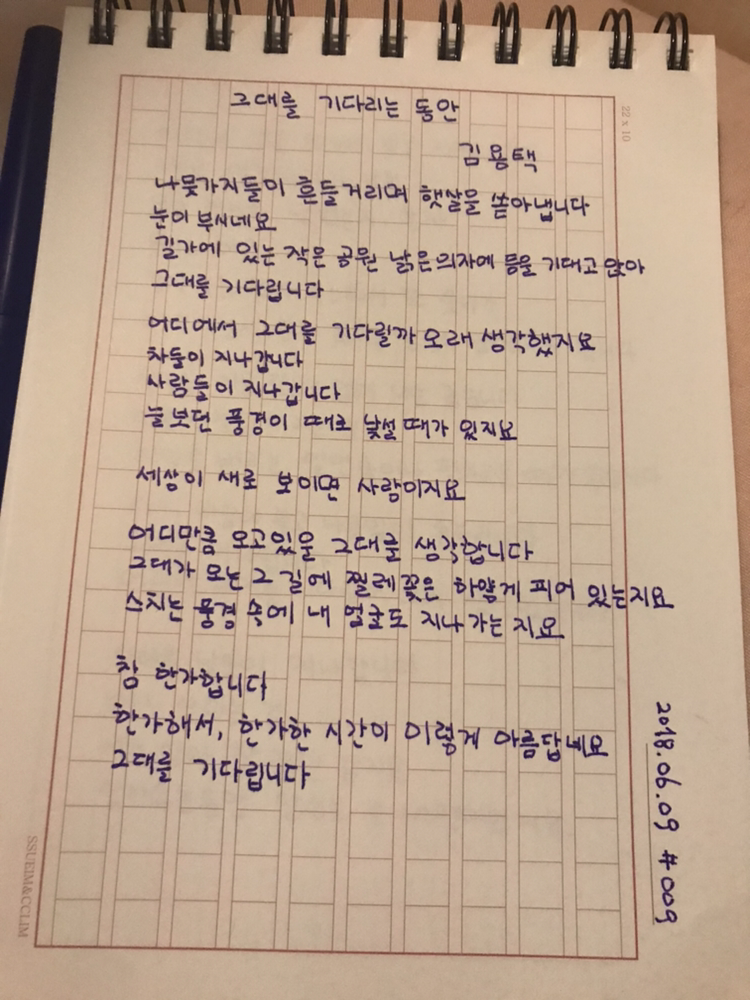 그대를 기다리는 동안
김용택
나뭇가지들이 흔들거리며 햇살을 쏟아냅니다
눈이 부시네요
길가에 있는 작은 공원 낡은 의자에 등을 기대고 앉아
그대를 기다립니다
어디에서 그대를 기다릴까 오래 생각했지요
차들이 지나갑니다
사람들이 지나갑니다
늘 보던 풍경이 때로 낯설 때가 있지요
세상이 새로 보이면 사랑이지요
어디만큼 오고있을 그대를 생각합니다
그대가 오는 그 길에 찔레꽃은 하얗게 피어 있는지요
스치는 풍경 속에 내 얼굴도 지나가는지요
참 한가합니다
한가해서, 한가한 시간이 이렇게 아름답네요
그대를 기다립니다
2018.06.09 #009
22 x 10
SSUEIM&CCLIM